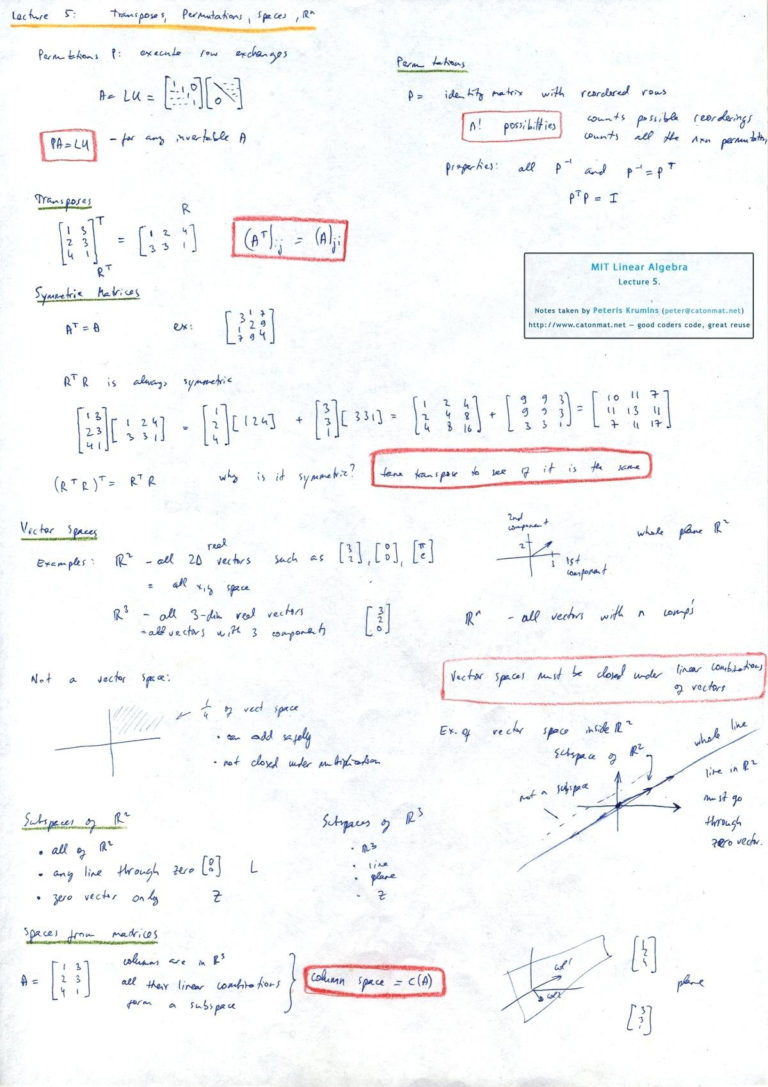 Lecture 5: Transposes, Permutations, Spaces, ℝⁿ
Permutations P: execute row exchanges
A = LU = [1 1 0 1] [0]
PA = LU - for any invertable A
Permutations
P = identity matrix with reordered rows
n! possibilties
counts possible reorderings
counts all the n×n permutation
properties: all P⁻¹ and P⁻¹ = Pᵀ
PᵀP = I
Transposes
R
[1 3; 2 3; 4 1]ᵀ = [1 2 4; 3 3 1]
Rᵀ
(Aᵀ)ij = (A)ji
MIT Linear Algebra
Lecture 5.
Notes taken by Peteris Krumins (peter@catonmat.net)
http://www.catonmat.net – good coders code, great reuse
Symmetric Matrices
Aᵀ = A ex: [3 1 7; 1 2 9; 7 9 4]
RᵀR is always symmetric
[1 3; 2 3; 4 1] [1 2 4; 3 3 1] = [1; 2; 4] [1 2 4] + [3; 3; 1] [3 3 1] = [1 2 4; 2 4 8; 4 8 16] + [9 9 3; 9 9 3; 3 3 1] = [10 11 7; 11 13 11; 7 11 17]
(RᵀR)ᵀ = RᵀR why is it symmetric? take transpose to see if it is the same
Vector Spaces
Examples: ℝ² - all 2D real vectors such as [3; 2], [0; 0], [π; e]
= all x,y space
2nd component
2
3
1st component
whole plane ℝ²
ℝ³ - all 3-dim real vectors
- all vectors with 3 components
[3; 2; 0]
ℝⁿ - all vectors with n comp's
Not a vector space:
1/4 of vect space
• can add safely
• not closed under multiplication
Vector spaces must be closed under linear combinations
of vectors
Ex. of vector space inside ℝ²
subspace of ℝ²
whole line
not a subspace
line in ℝ²
must go
through
zero vector.
Subspaces of ℝ²
• all of ℝ²
• any line through zero [0; 0] L
• zero vector only Z
Subspaces of ℝ³
• ℝ³
• line
• plane
• Z
Spaces from matrices
A = [1 3; 2 3; 4 1]
columns are in ℝ³
all their linear combinations
form a subspace
column space = C(A)
col1
col2
[1; 2; 4]
plane
[3; 3; 1]